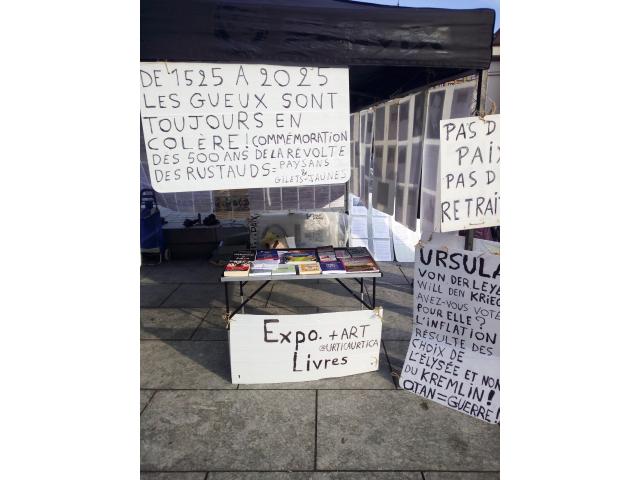 DE 1525 A 2025
LES GUEUX SONT
TOUJOURS EN
COLÈRE! COMMÉMORATION
DES 500 ANS DE LA RÉVOLTE
DES RUSTAUDS = PAYSANS
& GILETS-JAUNES
PAS D
PAIX
PAS D
RETRAI
URSULA
VON DER LEYE
WILL DEN KRIEG
AVEZ-VOUS VOTÉ
POUR ELLE?
L'INFLATION
RÉSULTE DES
CHOIX DE
L'ÉLYSÉE ET NON
DU KREMLIN!
OTAN = GUERRE!
Expo. + ART
@URTICAURTICA
Livres